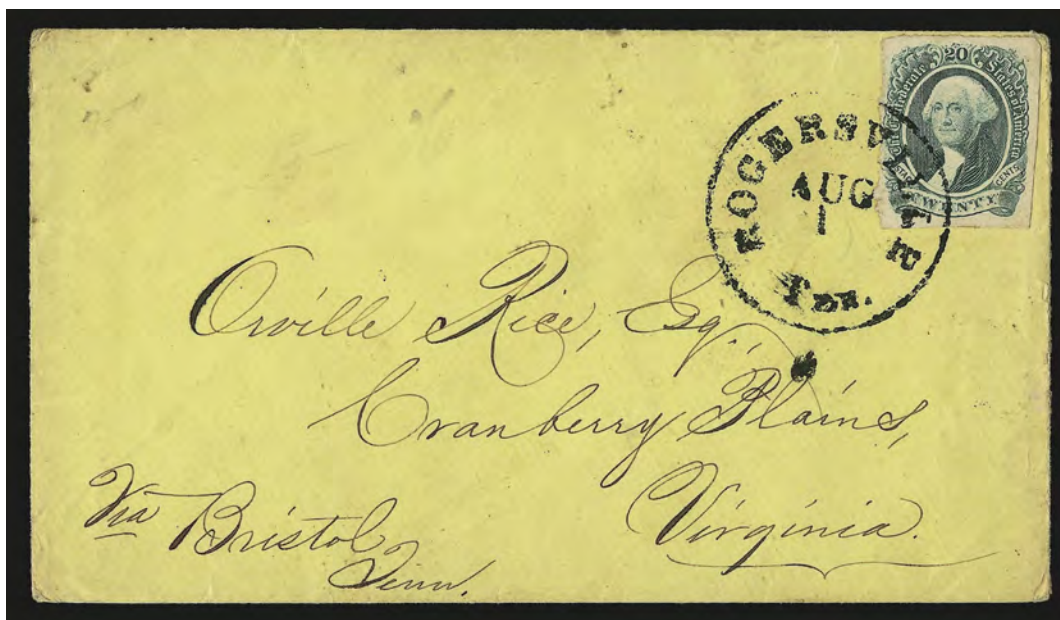 20
The Confederate States of America
CENTS
TWENTY
ROGERSVILLE
AUG
1
Ten.
Orville Rice, Esq.,
Cranberry Plains,
Virginia.
Via Bristol
Tenn.